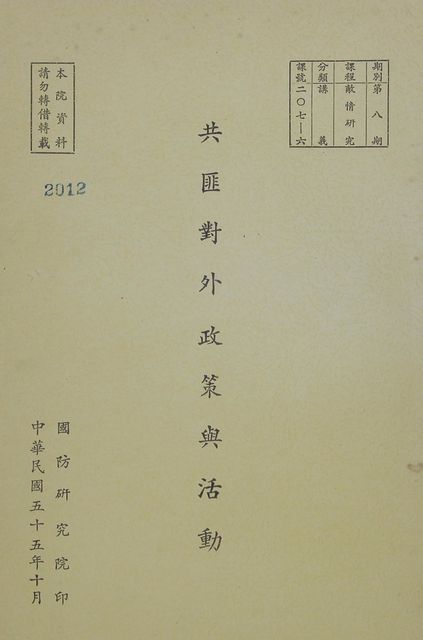 期別第八期
課程敵情研究
分類講義
課號二〇七—六
共匪對外政策與活動
本院資料
請勿轉借轉載
2012
國防研究院印
中華民國五十五年十月